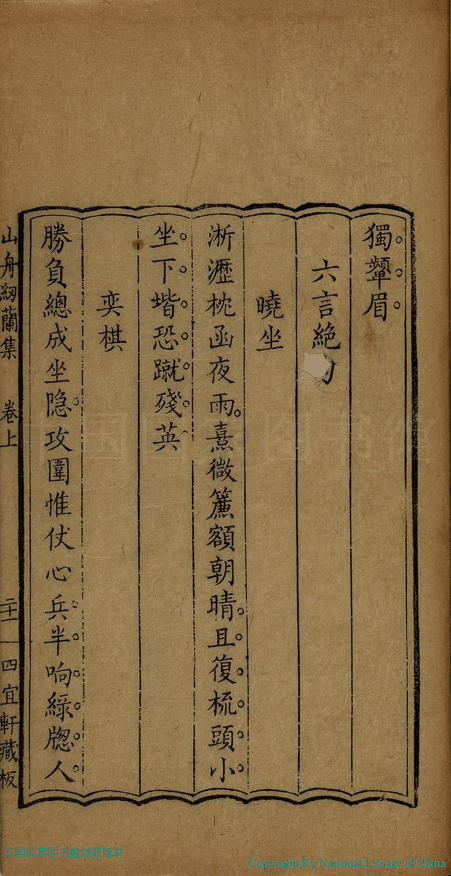 獨顰眉
六言絕句
曉坐
淅瀝枕函夜雨熹微簾額朝晴且復梳頭小
坐下堦恐蹴殘英
奕棋
勝負總成坐隐攻圍惟仗心兵半晌綠牕人
山舟紉蘭集 卷上 二十一 四宜軒藏板
Copyright By National Library of China